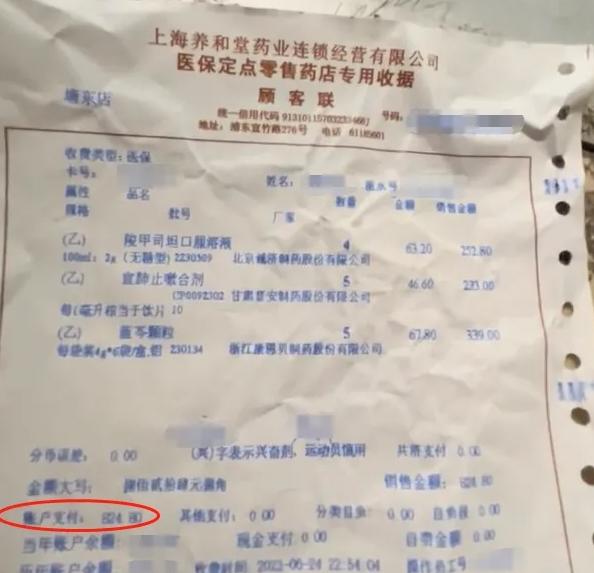 上海养和堂药业连锁经营有限公司
医保定点零售药店专用收据
顾客联
塘东店
统一信用代码 号码:
地址: 浦东宜竹路276号 电话 61185601
收费类型: 医保
卡号: 姓名: 流水号
属性 品名 数量 金额 销售金额
规格 批号 厂家
(乙) 羧甲司坦口服溶液 4 63.20 252.80
100ml: 2g (无糖型) 2230309 北京诚济制药股份有限公司
(乙) 宣肺止嗽合剂 5 46.60 233.00
CP0092302 甘肃普安制药股份有限公司
每1毫升相当于饮片 10
(乙) 蓝芩颗粒 5 67.80 339.00
每袋装4g*6袋/盒,铝 230134 浙江康恩贝制药股份有限公司
分币误差: 0.00 (兴)字表示兴奋剂, 运动员慎用 共济支付 0.00
金额大写: 捌佰贰拾肆元捌角 销售金额: 824.80
账户支付: 824.80 其他支付: 0.00 分类自负: 0.00 自负段 0.00
当年账户余额: 现金支付 0.00 自费金额 0.00
历年账户余额: 收费时间: 22:54:04 操作员工号